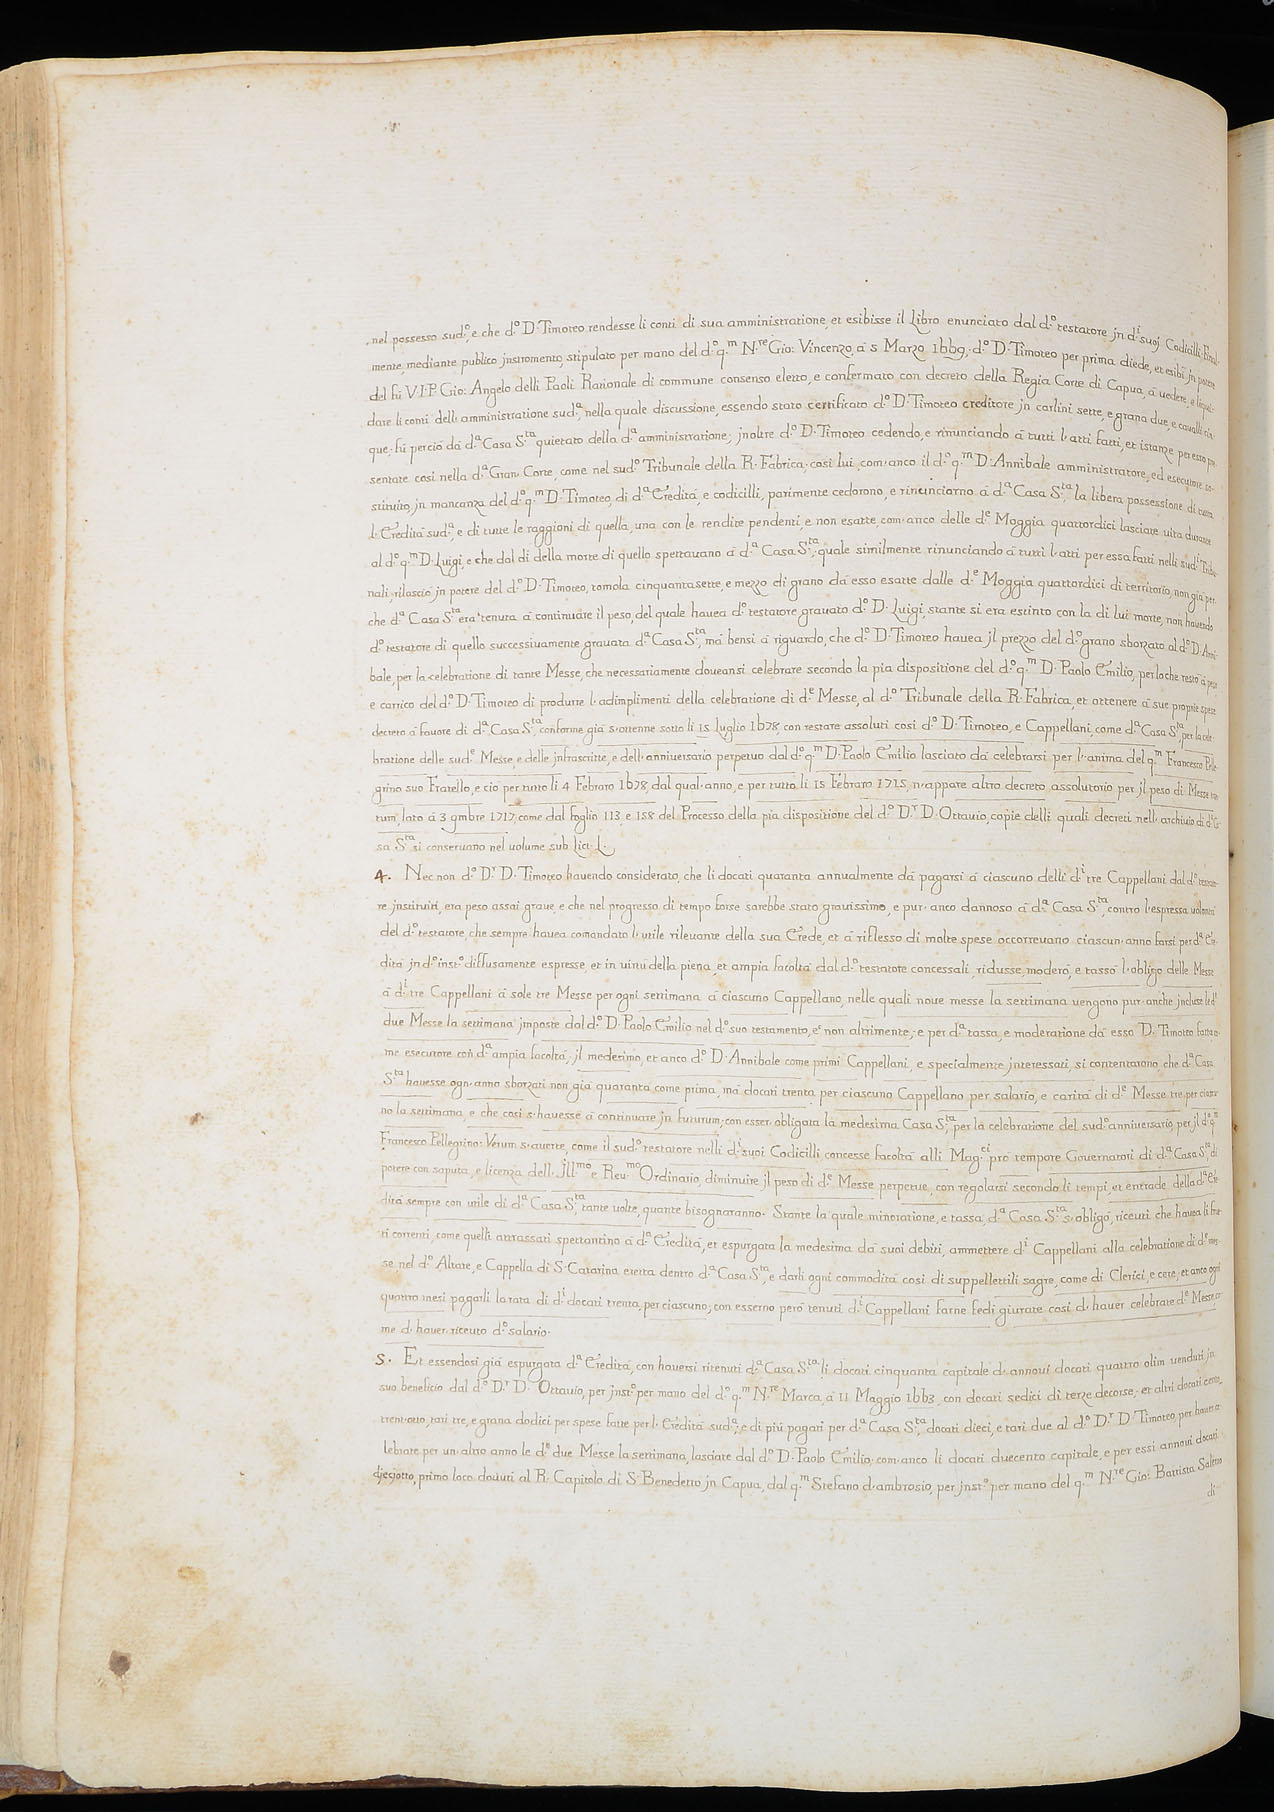 nel possesso sud.º, e che d.º D. Timoteo rendesse li conti di sua amministratione, et esibisse il Libro enunciato dal d.º testatore jn d.i suoj Codicilli. Final-
mente, mediante publico jnstromento, stipulato per mano del d.º q.m N.re Gio: Vincenzo, à 5 Marzo 1669, d.º D. Timoteo per prima diede, et esibì jn potere
del fù V.I.P. Gio: Angelo delli Paoli Rationale di commune consenso eletto, e confermato con decreto della Regia Corte di Capua, à vedere, e liqui-
dare li conti dell'amministratione sud.a, nella quale discussione, essendo stato certificato d.º D. Timoteo creditore jn carlini sette, e grana due, e cavalli cin-
que, fù perciò dà d.a Casa S.ta quietato della d.a amministratione; jnoltre d.º D. Timoteo cedendo, e rinunciando à tutti l'atti fatti, et istanze per esso pre-
sentate così nella d.a Gran Corte, come nel sud.º Tribunale della R. Fabrica, così lui, com'anco il d.º q.m D. Annibale amministratore, ed esecutore so-
stituito, jn mancanza del d.º q.m D. Timoteo, di d.a Eredità, e codicilli, parimente cederono, e rinunciorno à d.a Casa S.ta la libera possessione di tutta
l'Eredità sud.a, e di tutte le raggioni di quella, una con le rendite pendenti, e non esatte, com'anco delle d.e Moggia quattordici lasciate vita durante
al d.º q.m D. Luigi, e che dal dì della morte di quello spettavano à d.a Casa S.ta, quale similmente rinunciando à tutti l'atti per essa fatti nelli sud.i Tribu-
nali, rilasciò jn potere del d.º D. Timoteo, tomola cinquantasette, e mezzo di grano dà esso esatte dalle d.e Moggia quattordici di territorio, non già per-
che d.a Casa S.ta era tenuta à continuare il peso, del quale havea d.º testatore gravato d.º D. Luigi, stante si era estinto con la di lui morte, non havendo
d.º testatore di quello successivamente gravata d.a Casa S.ta, mà bensì à riguardo, che d.º D. Timoteo havea jl prezzo del d.º grano sborzato al d.º D. Anni-
bale, per la celebratione di tante Messe, che necessariamente doveansi celebrare secondo la pia dispositione del d.º q.m D. Paolo Emilio, per lo che restò à peso
e carrico del d.º D. Timoteo di produrre l'adimplimenti della celebratione di d.e Messe, al d.º Tribunale della R. Fabrica, et ottenere à sue proprie spese
decreto à favore di d.a Casa S.ta, conforme già s'ottenne sotto li 15 Luglio 1678, con restare assoluti così d.º D. Timoteo, e Cappellani, come d.a Casa S.ta, per la cele-
bratione delle sud.e Messe, e delle jnfrascritte, e dell'anniversario perpetuo dal d.º q.m D. Paolo Emilio lasciato dà celebrarsi per l'anima del q.m Francesco Pelle-
grino suo Fratello, e ciò per tutto li 4 Febraro 1678, dal qual'anno, e per tutto li 15 Febraro 1715, n'appare altro decreto assolutorio per jl peso di Messe tan-
tum, lato à 3 9mbre 1717, come dal foglio 113, e 158 del Processo della pia dispositione del d.º D.r D. Ottavio, copie delli quali decreti nell'archivio di d.a Ca-
sa S.ta si conservano nel volume sub Lict. L.
4. Nec non d.º D.r D. Timoteo havendo considerato, che li docati quaranta annualmente dà pagarsi à ciascuno delli d.i tre Cappellani dal d.º testato-
re jnstituiti, era peso assai grave, e che nel progresso di tempo forse sarebbe stato gravissimo, e pur'anco dannoso à d.a Casa S.ta, contro l'espressa volontà
del d.º testatore, che sempre havea comandato l'utile rilevante della sua Erede, et à riflesso di molte spese occorrevano ciascun'anno farsi per d.a Ere-
dità jn d.º inst.º diffusamente espresse, et in virtù della piena, et ampia facoltà dal d.º testatore concessali, ridusse, moderò, e tassò l'obligo delle Messe
à d.i tre Cappellani à sole tre Messe per ogni settimana à ciascuno Cappellano, nelle quali nove messe la settimana vengono pur'anche jncluse le d.e
due Messe la settimana jmposte dal d.º D. Paolo Emilio nel d.º suo testamento, e non altrimente; e per d.a tassa, e moderatione dà esso D. Timoteo fatta co-
me esecutore con d.a ampia facoltà, jl medesimo, et anco d.º D. Annibale come primi Cappellani, e specialmente jnteressati, si contentarono, che d.a Casa
S.ta havesse ogn'anno sborzati non già quaranta come prima, mà docati trenta per ciascuno Cappellano per salario, e carità di d.e Messe tre per ciascu-
no la settimana, e che così s'havesse à continuare jn futurum; con esser'obligata la medesima Casa S.ta per la celebratione del sud.º anniversario, per jl d.º q.m
Francesco Pellegrino: Verum s'averte, come il sud.º testatore nelli d.i suoi Codicilli concesse facoltà alli Mag.ci pro tempore Governatori di d.a Casa S.ta, di
potere con saputa, e licenza dell'Jll.mo e Rev.mo Ordinario, diminuire jl peso di d.e Messe perpetue, con regolarsi secondo li tempi, et entrade della d.a Ere-
dità sempre con utile di d.a Casa S.ta tante volte, quante bisognaranno. Stante la quale minoratione, e tassa, d.a Casa S.ta s'obligò, riceuti che havea li frut-
ti correnti, come quelli attrassati spettantino à d.a Eredità, et espurgata la medesima dà suoi debiti, ammettere d.i Cappellani alla celebratione di d.e mes-
se nel d.º Altare, e Cappella di S. Catarina eretta dentro d.a Casa S.ta, e darli ogni commodità così di suppellettili sagre, come di Clerici, e cere, et anco ogni
quattro mesi pagarli la rata di d.i docati trenta, per ciascuno; con esserno però tenuti d.i Cappellani farne fedi giurate così d'haver celebrate d.e Messe, co-
me d'haver riceuto d.º salario.
5. Et essendosi già espurgata d.a Eredità, con haversi ritenuti d.a Casa S.ta li docati cinquanta capitale d'annovi docati quattro olim venduti jn
suo beneficio dal d.º D.r D. Ottavio, per jnst.º per mano del d.º q.m N.re Marca, à 11 Maggio 1663, con docati sedici di terze decorse; et altri docati cento,
trent'otto, tarì tre, e grana dodici per spese fatte per l'Eredità sud.a; e di più pagati per d.a Casa S.ta, docati dieci, e tarì due al d.º D.r D. Timoteo, per haver ce-
lebrate per un'altro anno le d.e due Messe la settimana, lasciate dal d.º D. Paolo Emilio. com'anco li docati duecento capitale, e per essi annovi docati
djeciotto, primo loco dovuti al R. Capitolo di S. Benedetto jn Capua, dal q.m Stefano d'ambrosio, per jnst.º per mano del q.m N.re Gio: Battista Salerno
di